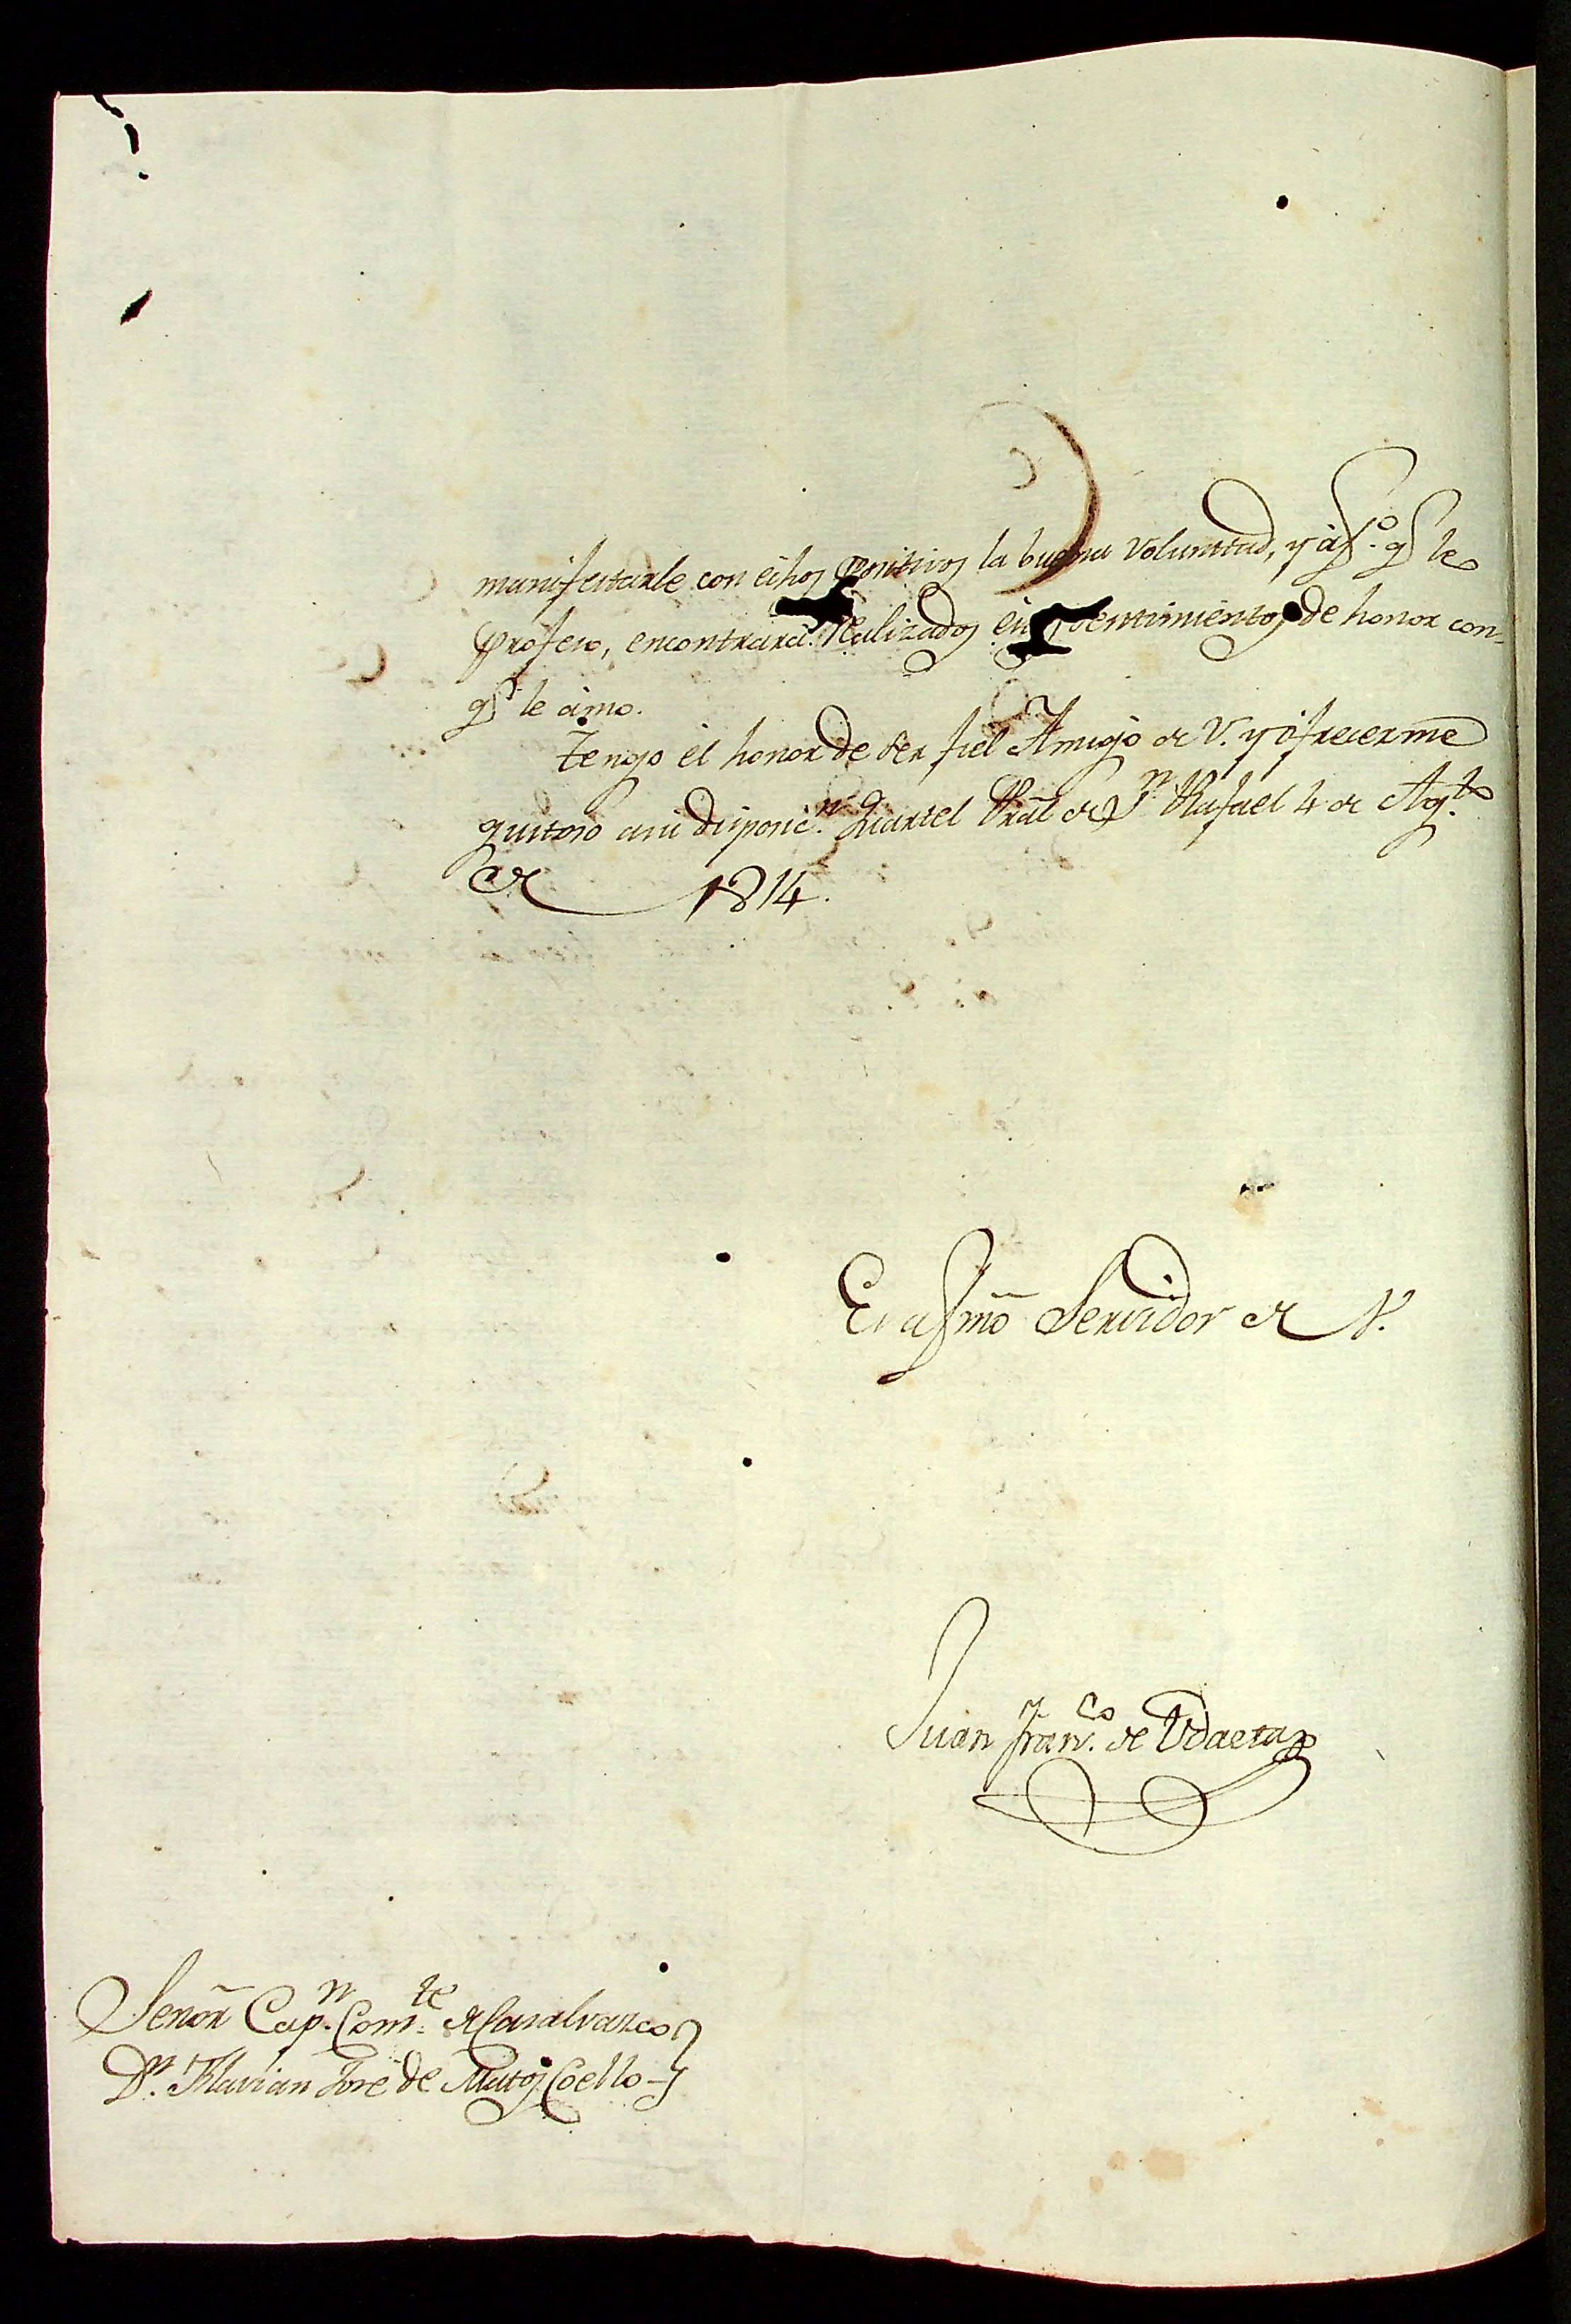 manifestarle con echos positivos la buena Voluntad, y afto. q.e le
profeso, encontrará realizados en sentimientos de honor con
q.e le ámo.
Tengo él honor de ser fiel Amigo de V. y ófrecerme
gustoso asu disposic.n Quartel Pral de S.n Rafael 4 de Ag.to
de 1814.
Servidor de V.
Juan Fran.co de Udaeta
Señor Cap.n Com.te de Casalvasco
D.n Flavian José de Matos Coello